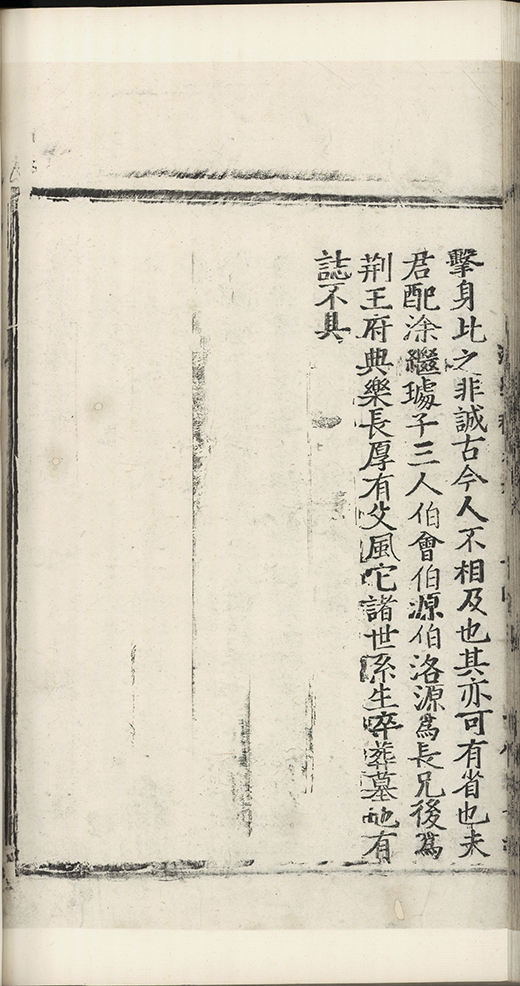 擊身比之非誠古今人不相及也其亦可有省也夫
君配涂繼璩子三人伯會伯源伯洛源為長兄後為
荆王府典樂長厚有父風它諸世系生卒葬墓地有
誌不具